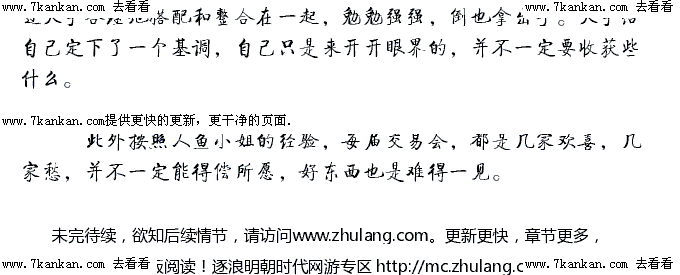 www.7kankan.com 去看看 www.7kankan.com 去看看
搭配和整合在一起，勉勉强强，倒也拿出手。
自己定下了一个基调，自己只是来开开眼界的，并不一定要收获些
什么。
www.7kankan.com提供更快的更新，更干净的页面.
此外按照人鱼小姐的经验，每届交易会，都是几家欢喜，几
家愁，并不一定能得偿所愿，好东西也是难得一见。
未完待续，欲知后续情节，请访问www.zhulang.com。更新更快，章节更多，
www.7kankan.com 去看看 阅读！逐浪明朝时代网游专区 http://mc.zhulang.c www.7kankan.com 去看看